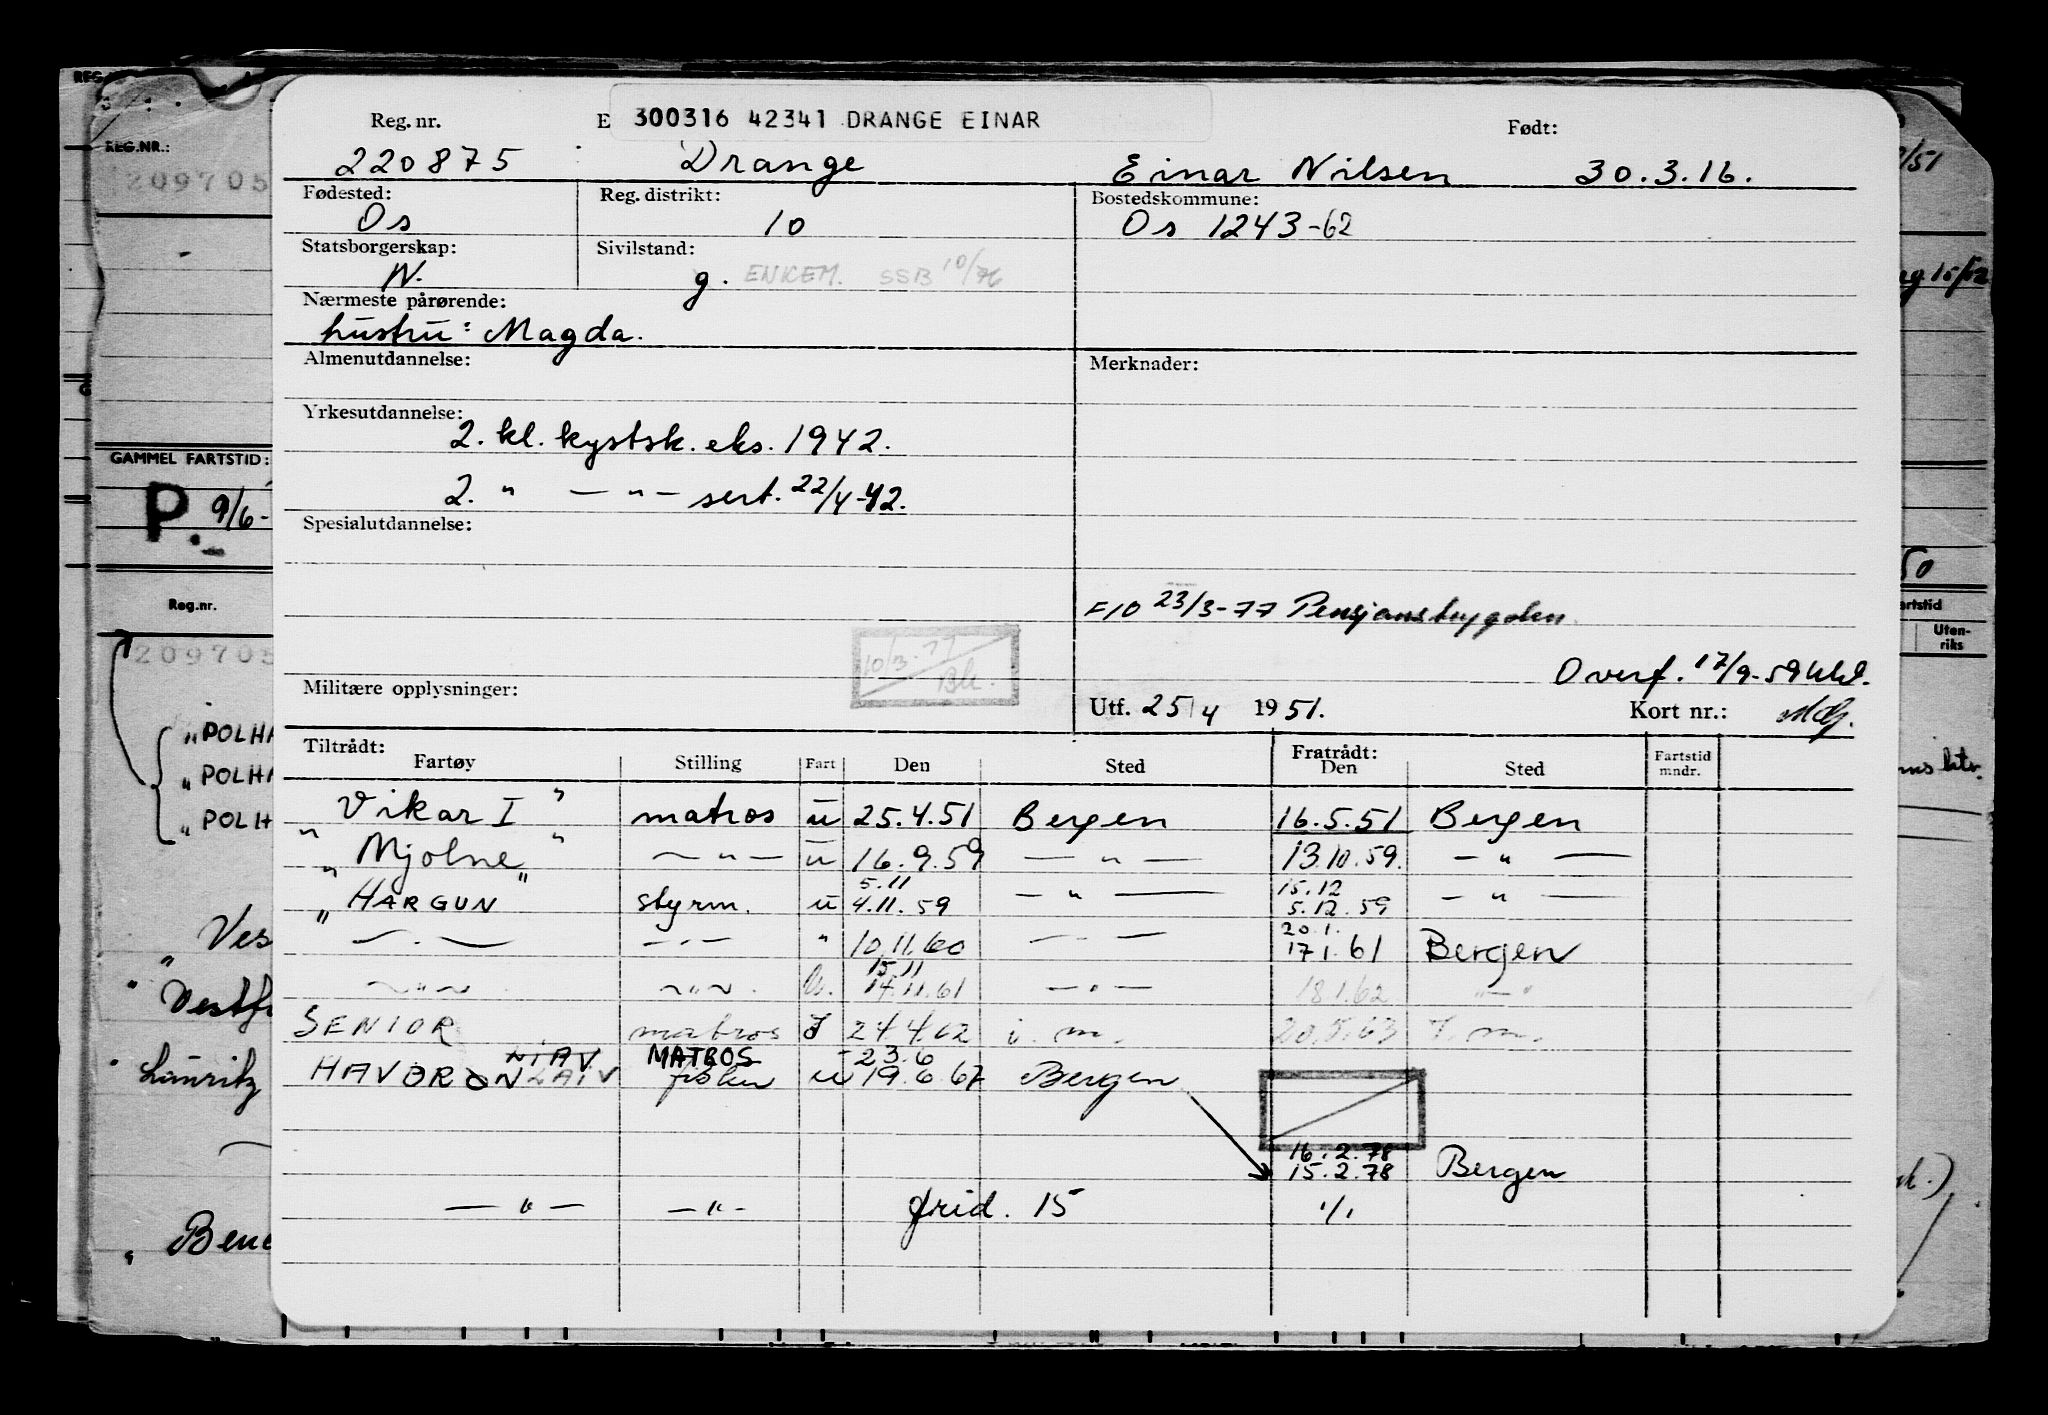 Reg. nr. E 300316 42341 DRANGE EINAR Født:
220875 Drange Einar Nilsen 30.3.16.
Fødested: Reg. distrikt: Bostedskommune:
Os 10 Os 1243-62
Statsborgerskap: Sivilstand:
N. g. ENKEM. SSB 10/76
Nærmeste pårørende:
hustru: Magda.
Almenutdannelse: Merknader:
Yrkesutdannelse:
2. kl. kystsk. eks. 1942.
2. " — " — sert. 22/4-42.
Spesialutdannelse:
F/O 23/3-77 Pensjonstrygden.
10/3.77
Bk.
Overf. 17/9-59
Militære opplysninger: Utf. 25/4 1951. Kort nr.:
Tiltrådt: Fratrådt:
Fartøy Stilling Fart Den Sted Den Sted Fartstid mndr.
"Vikar I" matros u 25.4.51 Bergen 16.5.51 Bergen
"Mjolne" — " — u 16.9.59 — " — 13.10.59. — " —
5.11 15.12
"HARGUN" styrm. u 4.11.59 — " — 5.12.59 — " —
20.1.
— " — — " — " 10.11.60 — " — 17.1.61 Bergen
15.11
— " — — " — 14.11.61 — " — 18.1.62 — " —
SENIOR matros J 24.4.62 i. m. 20.5.63 i. m.
LIAV MATROS 23.6
HAVDRØN LAIV fisker u 19.6.67 Bergen
16.2.78
15.2.78 Bergen
— " — — " — frid. 15 1/1
REG.NR.:
209705
GAMMEL FARTSTID:
P. 9/6-
Reg.nr.
209705
"POLHA
"POLHA
"POLH
Ves
"Vestf
"Lauritz
"Bene
/51
15/52
50
artstid
Uten-
riks